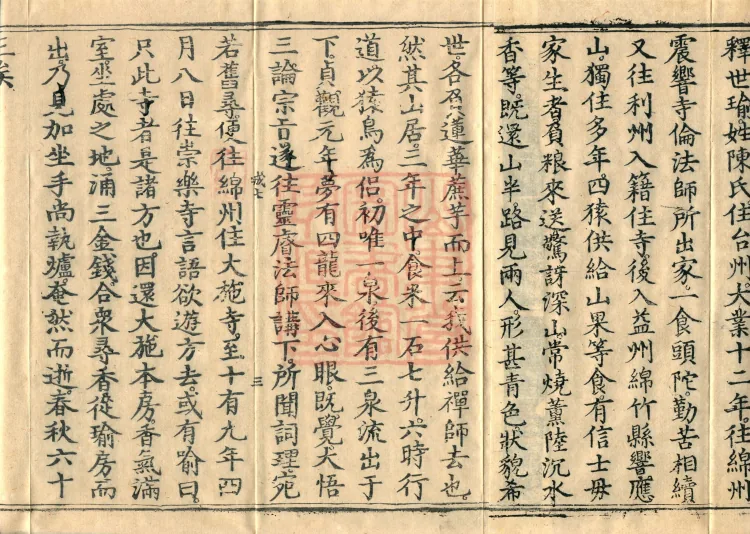 釋世瑜姓陳氏住台州大業十二年往綿州
震響寺倫法師所出家一食頭陀勤苦相續
又往利州入籍住寺後入益州綿竹縣響應
山獨住多年四猿供給山果等食有信士毋
家生者負粮來送驚訝深山常燒薰陸沉水
香等既還山半路見兩人形甚青色狀貌希
世各召蓮華蔗芋而上云我供給禪師去也
然其山居三年之中食米一石七升六時行
道以猿鳥爲侶初唯一泉後有三泉流出于
下貞觀元年夢有四龍來入心眼既覺大悟
三論宗旨遂往靈睿法師講下所聞詞理宛
若舊尋便往綿州住大施寺至十有九年四
月八日往崇樂寺言語欲遊方去或有喻曰
只此寺者是諸方也因還大施本房香氣滿
室坐處之地涌三金錢合衆尋香從瑜房而
出乃見加坐手尚執爐奄然而逝春秋六十
三矣
三